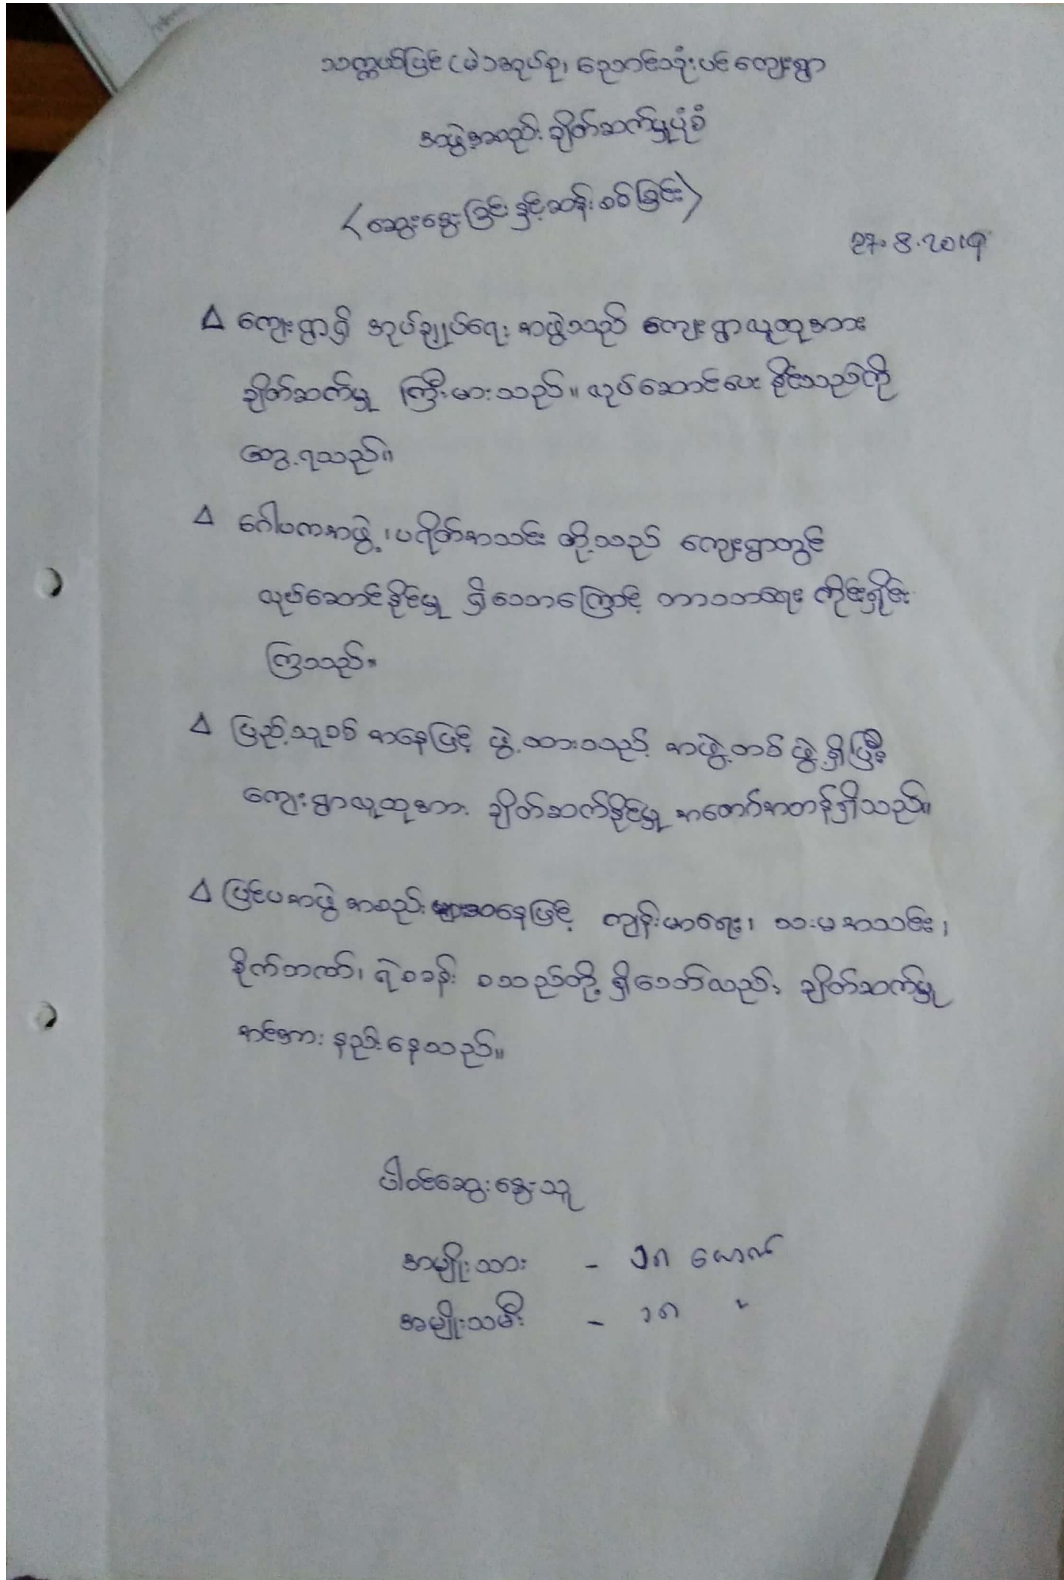 သက္ကယ်ပြင် (မဲ) အုပ်စု၊ ညောင်သုံးပင် ကျေးရွာ
အဖွဲ့အစည်း ချိတ်ဆက်မှုပုံစံ
〈 ဆွေးနွေးခြင်း နှင့် ဆန်းစစ်ခြင်း 〉
27.8.2019
∆ ကျေးရွာရှိ အုပ်ချုပ်ရေး အဖွဲ့သည် ကျေးရွာလူထုအား
ချိတ်ဆက်မှု ကြီးမားသည်။ လုပ်ဆောင်ပေး နိုင်သည်ကို
တွေ့ရသည်။
∆ ဂေါပကအဖွဲ့၊ ပရိတ်အသင်း တို့သည် ကျေးရွာတွင်
လုပ်ဆောင်နိုင်မှု ရှိသောကြောင့် ဘာသာရေး ကိုင်းရှိုင်း
ကြသည်။
∆ ပြည်သူ့စစ် အနေဖြင့် ဖွဲ့ထားသည့် အဖွဲ့တစ်ဖွဲ့ရှိပြီး
ကျေးရွာလူထုအား ချိတ်ဆက်နိုင်မှု အတော်အတန်ရှိသည်။
∆ ပြင်ပအဖွဲ့အစည်း အနေဖြင့် ကျန်းမာရေး၊ သားမအသင်း၊
စိုက်ဘဏ်၊ ရဲစခန်း စသည်တို့ ရှိသော်လည်း ချိတ်ဆက်မှု
အင်အား နည်းနေသည်။
ပါဝင်ဆွေးနွေးသူ
အမျိုးသား - ယောက်
အမျိုးသမီး - "